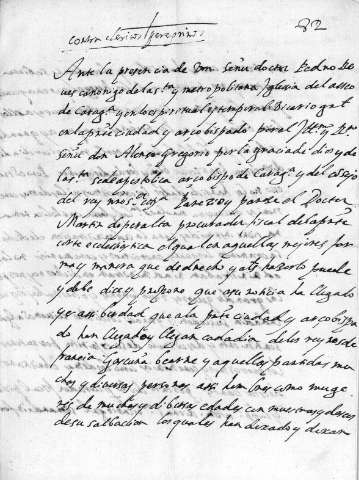 contra clericos peregrinos
82
Ante la presencia de Don Señor doctor Pedro Re
ves canonigo de la s.ta y metropolitana Iglesia del asseo
de Carag.a y en lo spiritual y temporal Vicario g.ral
en la pnte ciudad y arcobispado por el Ill.mo y R.mo
señor don Alonso Gregorio por la gracia de dios y de
la s.ta sede apostolica arcobispo de Carag.a y del consejo
del rey nro s.r parece el Doctor
Martin de peralta procurador fiscal de la pnte
corte ecclesiastica el qual en aquellas mejores for
ma y manera que de drecho y als hazerlo puede
y debe dize y propone que a su noticia ha llegado
y es assi berdad que a la pnte ciudad y arcobispa
do han llegado y llegan cada dia de los reynos de
francia gascuña bearne y aquellas partidas mu
chos y diversas personas assi hombres como muge
res de muchas y diversas edades con muestras y desseos
de su salbacion los quales han dexado y dexan